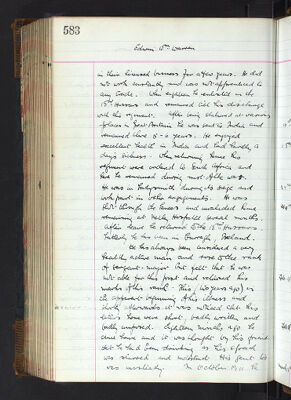 583
Edwin Wm Warren
in their licensed business for a few years. He did
not work constantly and was not apprenticed to
any trade. When eighteen he enlisted in the
15th Hussars and remained till his discharge
with the regiment. After being stationed at various
places in Great Britain he was sent to India and
remained there 5-6 years. He enjoyed
excellent health in India and had hardly a
days sickness. When returning home his
regiment was ordered to South Africa and
here he remained during most of the war.
He was in Ladysmith during its siege and
took part in other engagements. He was
shot through the knees and invalided home
remaining at Netley Hospital several months
after leave he returned to the 15th Hussars.
Latterly he has been in Curragh, Ireland.
He has always been considered a very
healthy active man and rose to the rank
of Sergeant-major but felt that he was
not able for this post and relieved this
the apparent beginning of his illness and
shortly afterwards it was noticed that his
letters home were short, badly written and
badly composed. Eighteen months ago he
came home and it was thought by his friends
that he had been drinking as his speech
was slurred and indistinct. His gait too
was unsteady. In October 1911 he